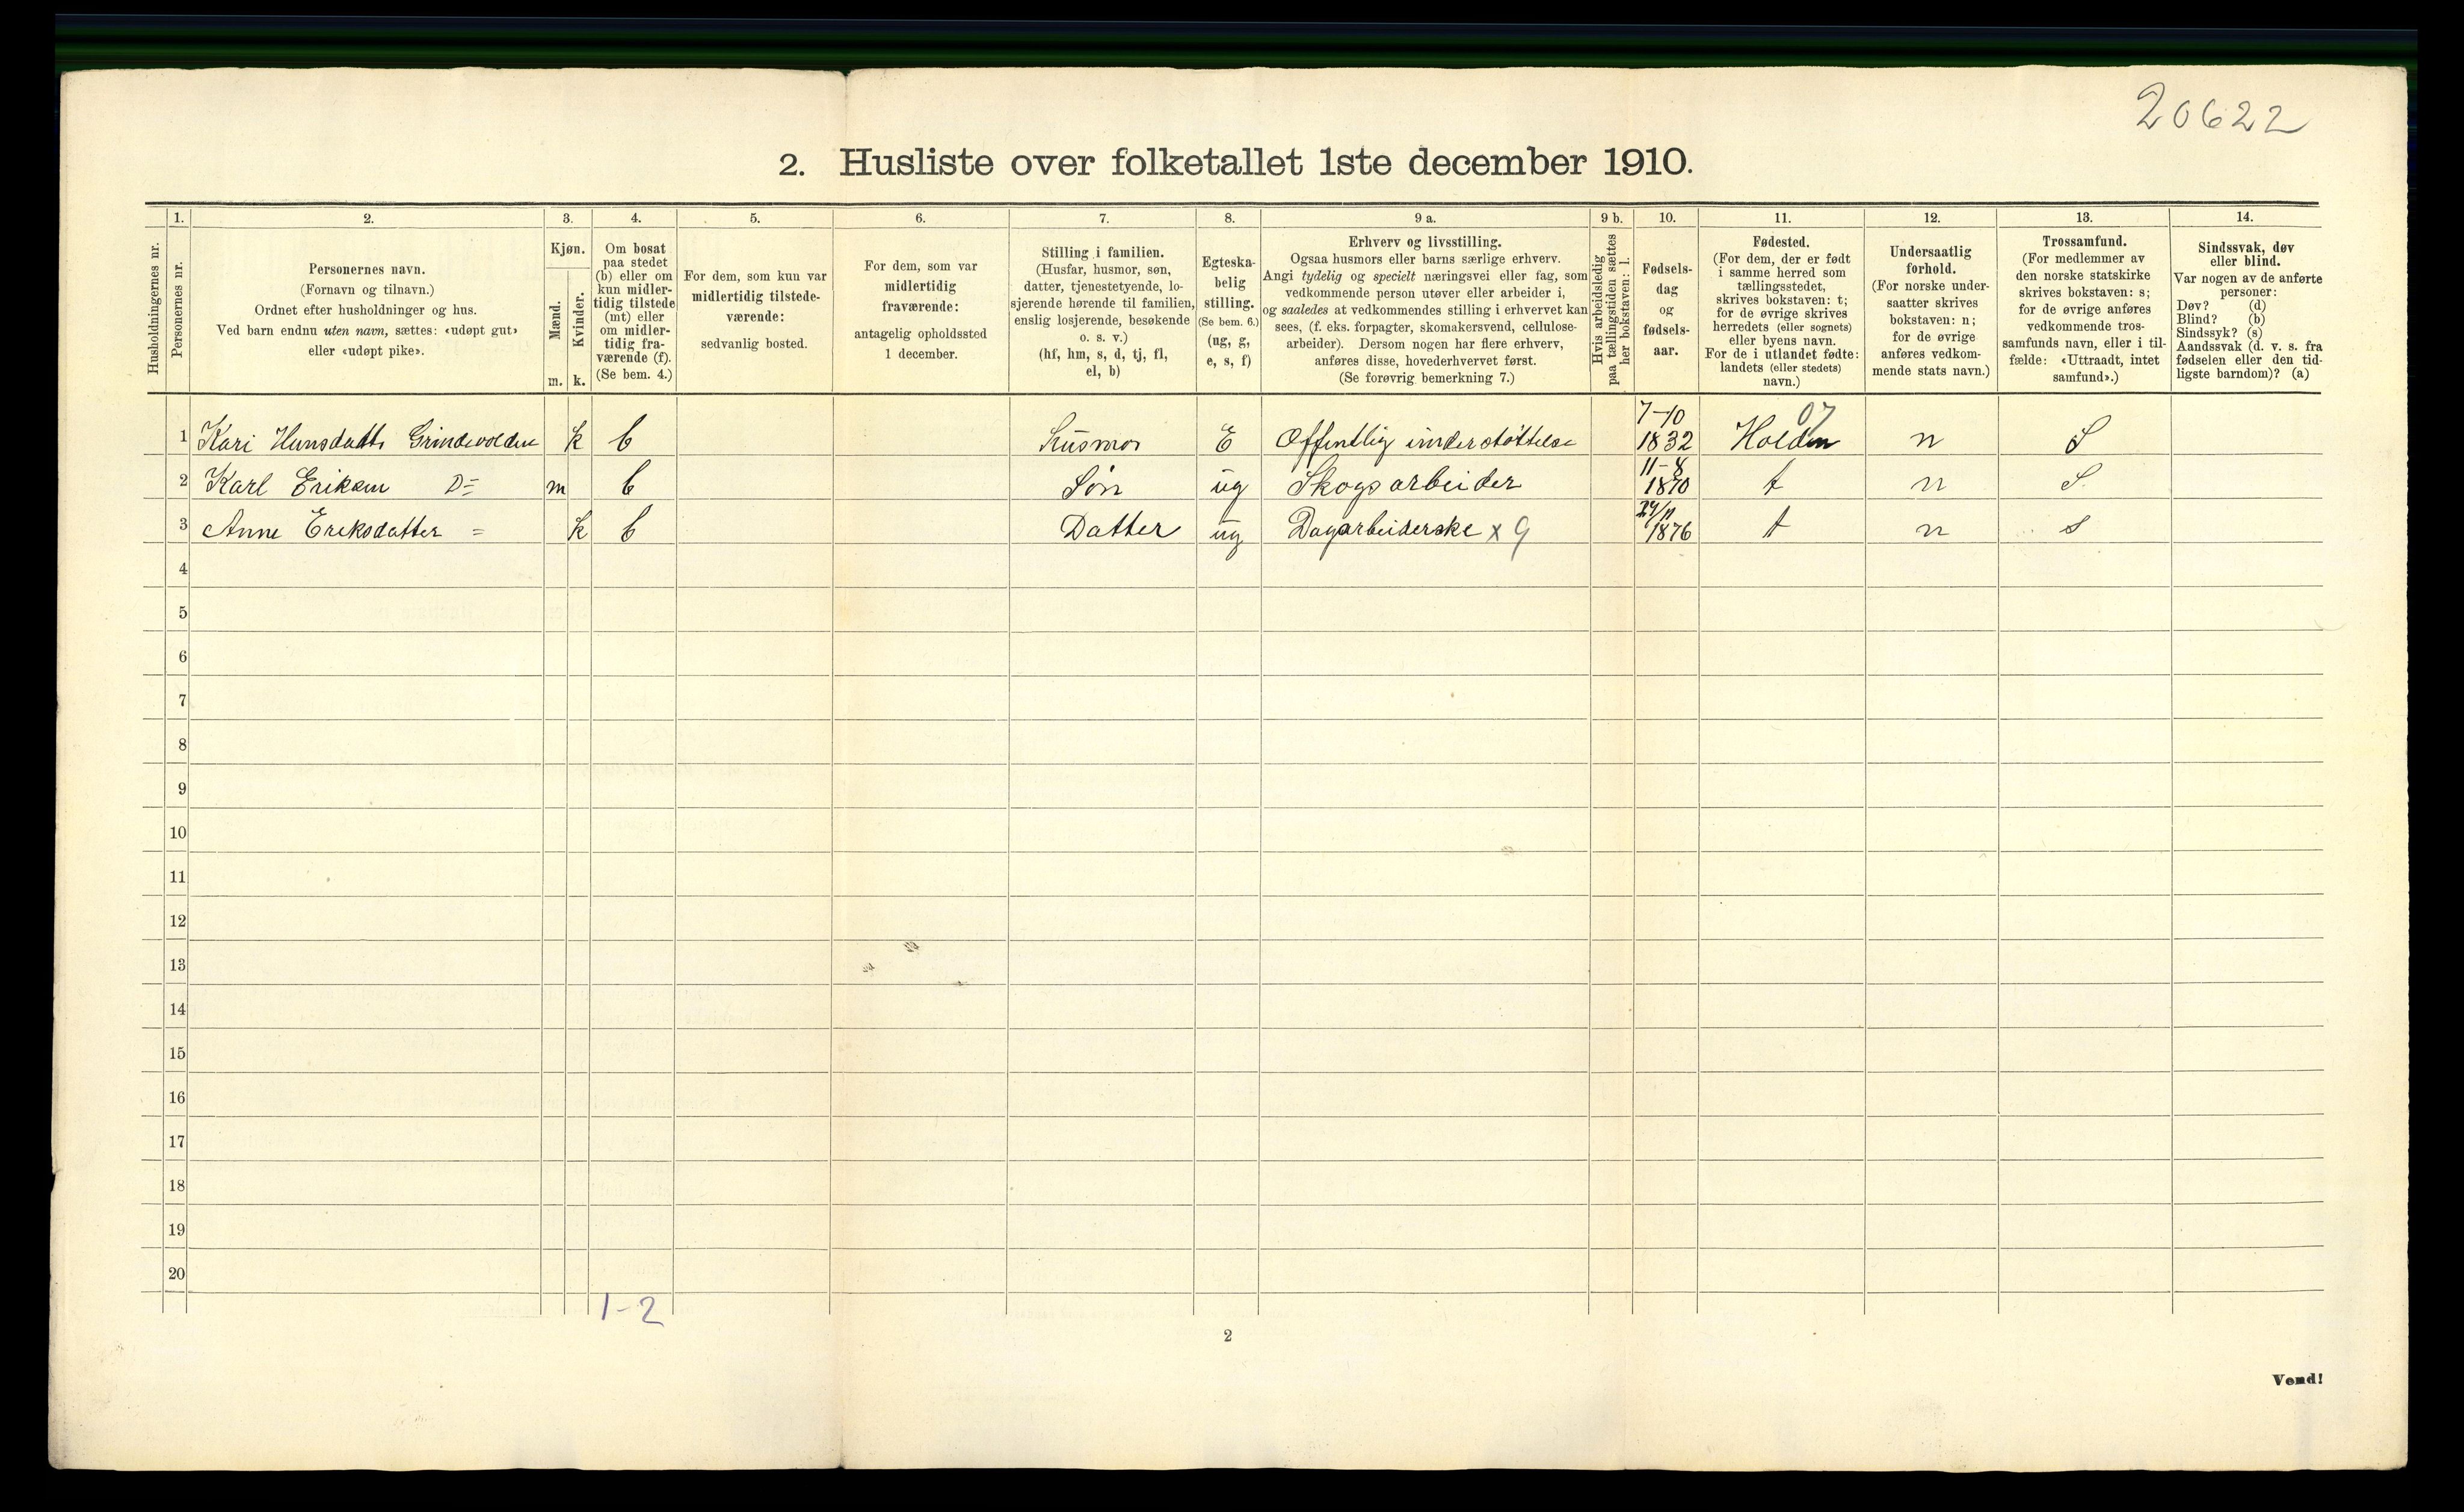 20622
2. Husliste over folketallet 1ste december 1910.
Husholdningernes nr.
1.
Personernes nr.
2.
Personernes navn.
(Fornavn og tilnavn.)
Ordnet efter husholdninger og hus.
Ved barn endnu uten navn, sættes: «udøpt gut»
eller «udøpt pike».
3.
Kjøn.
Mænd.
m.
Kvinder.
k.
4.
Om bosat
paa stedet
(b) eller om
kun midler-
tidig tilstede
(mt) eller
om midler-
tidig fra-
værende (f).
(Se bem. 4.)
5.
For dem, som kun var
midlertidig tilstede-
værende:
sedvanlig bosted.
6.
For dem, som var
midlertidig
fraværende:
antagelig opholdssted
1 december.
7.
Stilling i familien.
(Husfar, husmor, søn,
datter, tjenestetyende, lo-
sjerende hørende til familien,
enslig losjerende, besøkende
o. s. v.)
(hf, hm, s, d, tj, fl,
el, b)
8.
Egteska-
belig
stilling.
(Se bem. 6.)
(ug, g,
e, s, f)
9 a.
Erhverv og livsstilling.
Ogsaa husmors eller barns særlige erhverv.
Angi tydelig og specielt næringsvei eller fag, som
vedkommende person utøver eller arbeider i,
og saaledes at vedkommendes stilling i erhvervet kan
sees, (f. eks. forpagter, skomakersvend, cellulose-
arbeider). Dersom nogen har flere erhverv,
anføres disse, hovederhvervet først.
(Se forøvrig bemerkning 7.)
9 b.
Hvis arbeidsledig
paa tællingstiden sættes
her bokstaven: l.
10.
Fødsels-
dag
og
fødsels-
aar.
11.
Fødested.
(For dem, der er født
i samme herred som
tællingsstedet,
skrives bokstaven: t;
for de øvrige skrives
herredets (eller sognets)
eller byens navn.
For de i utlandet fødte:
landets (eller stedets)
navn.)
12.
Undersaatlig
forhold.
(For norske under-
saatter skrives
bokstaven: n;
for de øvrige
anføres vedkom-
mende stats navn.)
13.
Trossamfund.
(For medlemmer av
den norske statskirke
skrives bokstaven: s;
for de øvrige anføres
vedkommende tros-
samfunds navn, eller i til-
fælde: «Uttraadt, intet
samfund».)
14.
Sindssvak, døv
eller blind.
Var nogen av de anførte
personer:
Døv? (d)
Blind? (b)
Sindssyk? (s)
Aandssvak (d. v. s. fra
fødselen eller den tid-
ligste barndom)? (a)
1 Kari Hansdatts Grindvolden k b Husmor E Offentlig understøttelse 7-10 1832 Holden 07 n S
2 Karl Eriksen D= m b Søn ug Skogsarbeider 11-8 1870 t n S.
3 Anne Eriksdatter = k b Datter ug Dagarbeiderske x 9 24/11 1876 t n s
4
5
6
7
8
9
10
11
12
13
14
15
16
17
18
19
20
1-2
2
Vend!